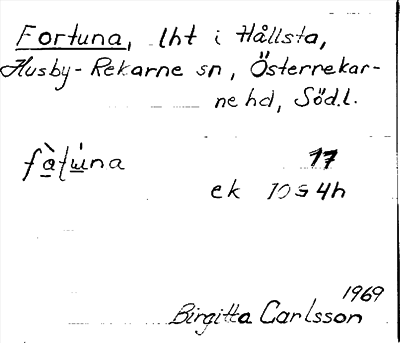 Fortuna, lht i Hållsta,
Husby-Rekarne sn, Österrekar-
ne hd, Södl.
17
ek 10 S 4h
1969
Birgitta Carlsson